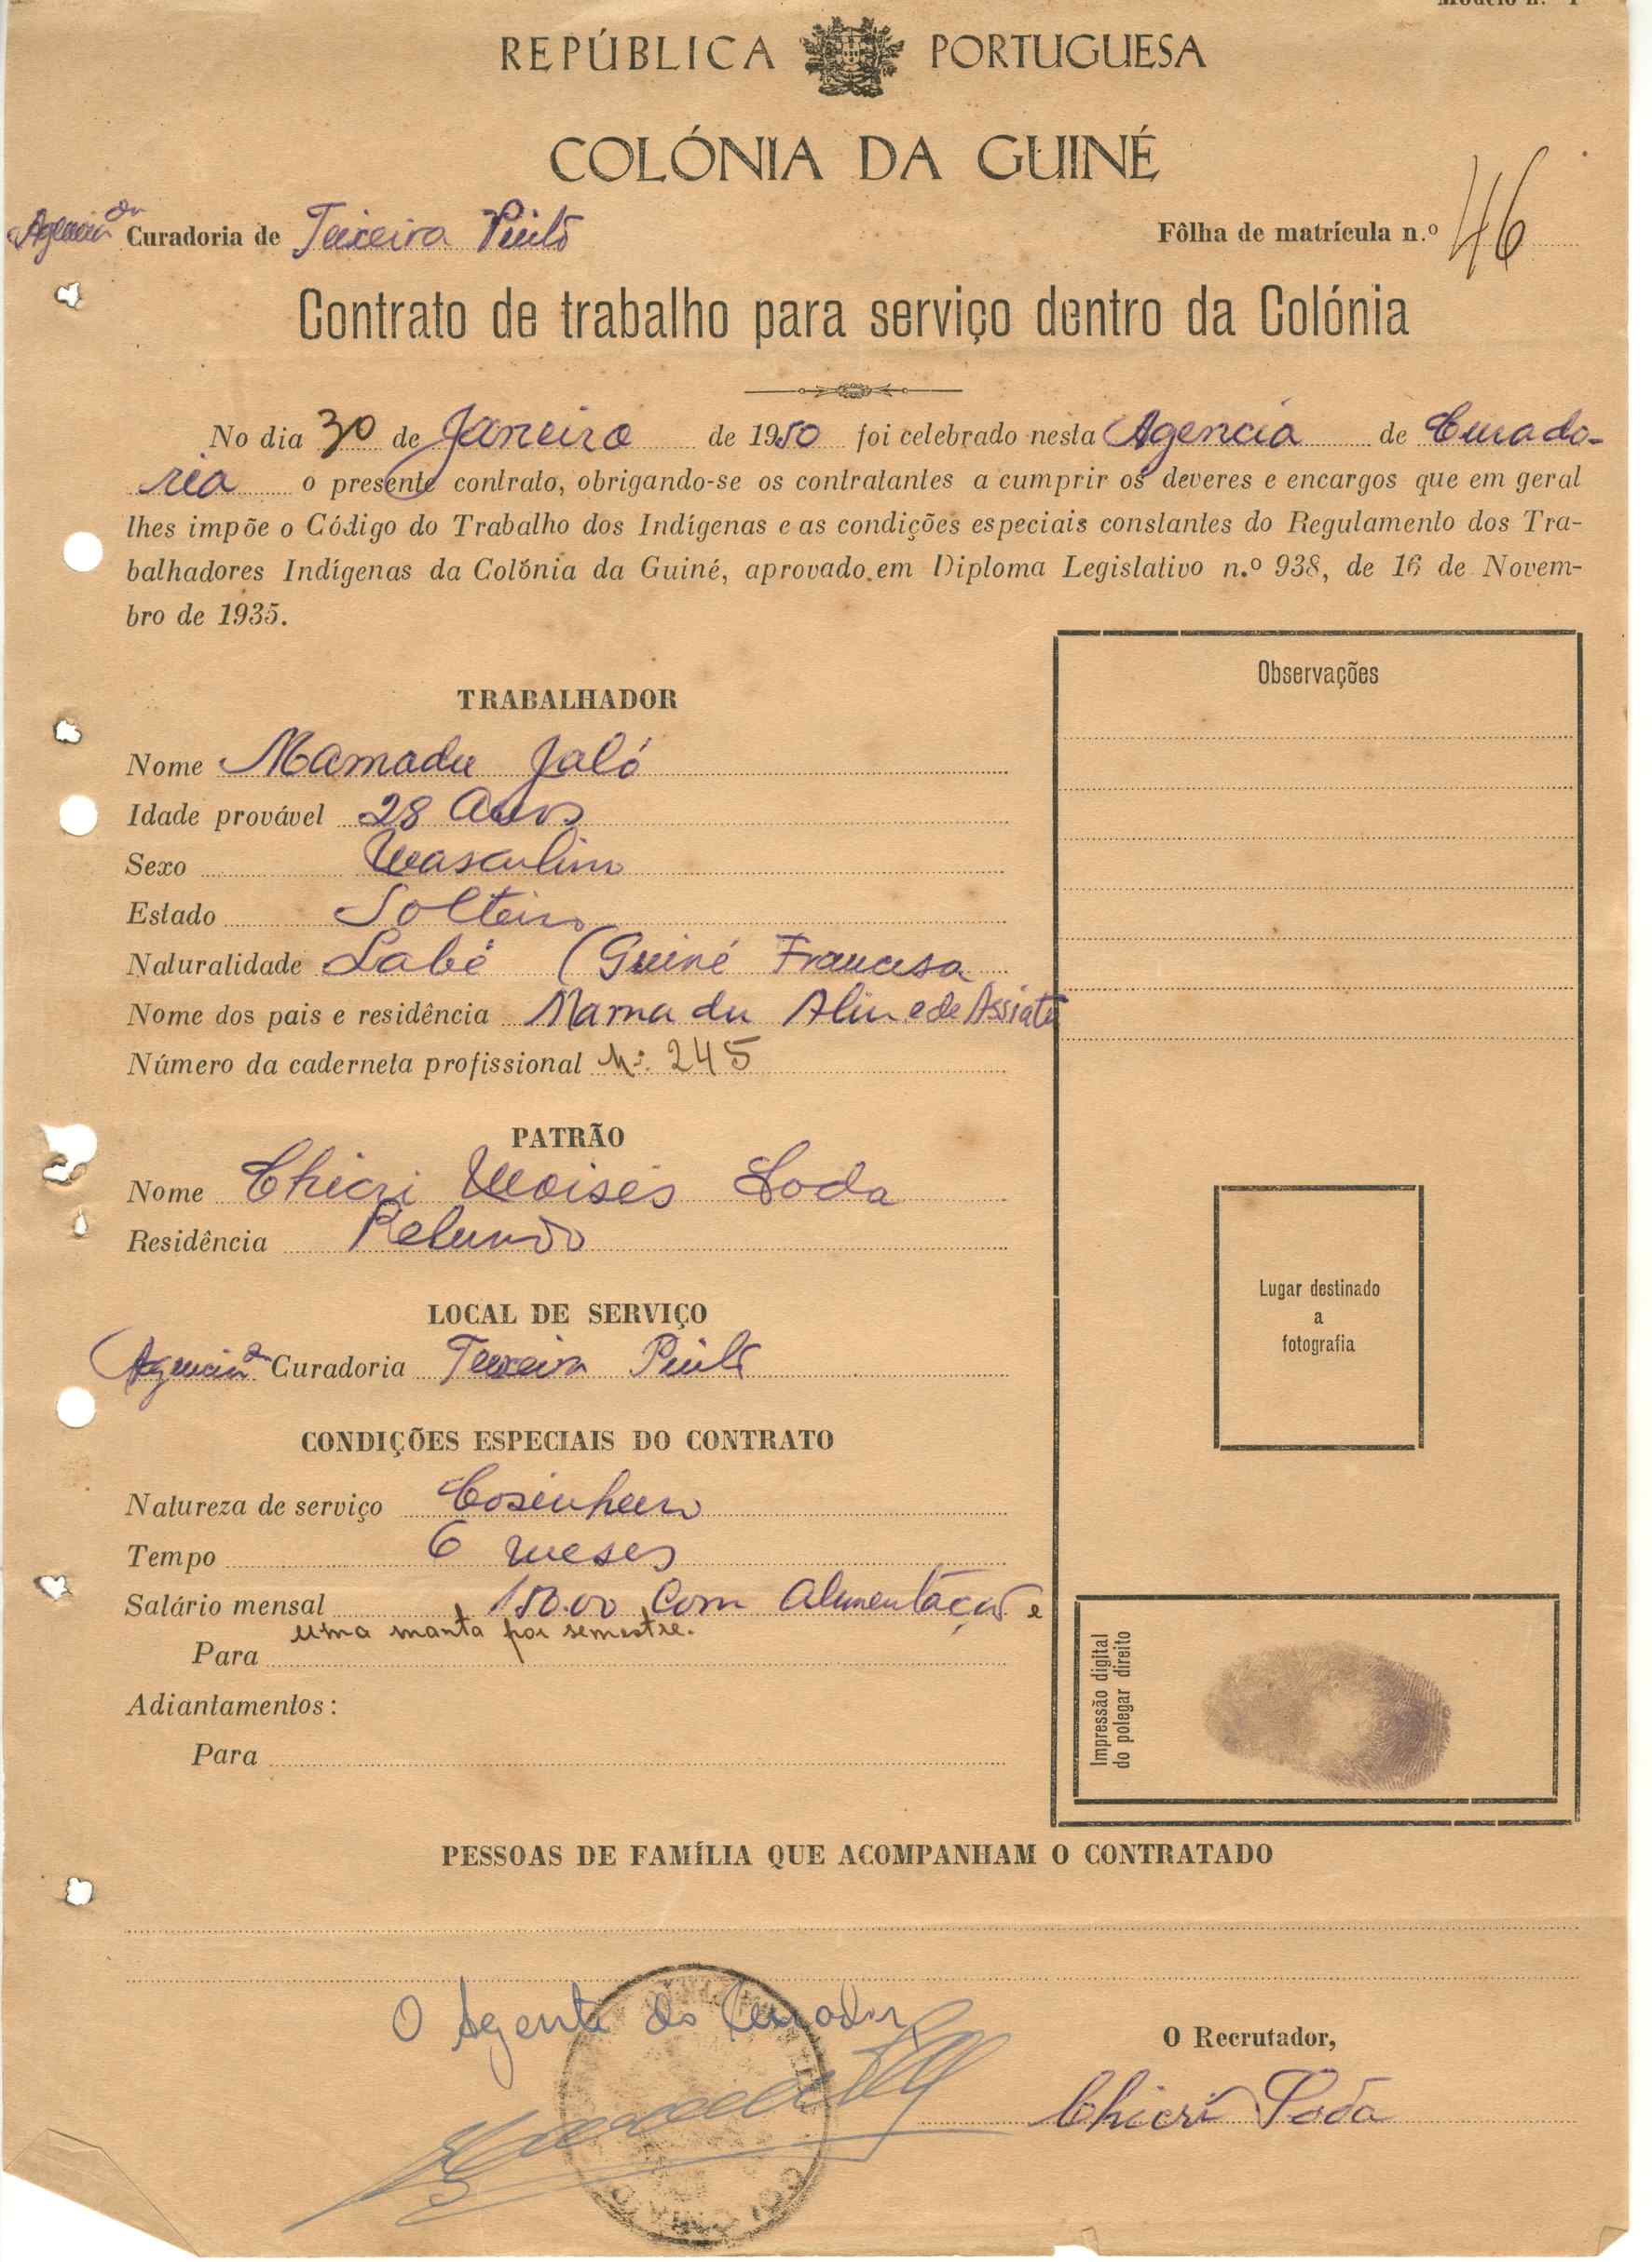 Modelo n.º 1
REPÚBLICA PORTUGUESA
COLÓNIA DA GUINÉ
Agencia da Curadoria de Teixeira Pinto Fôlha de matrícula n.º 46
Contrato de trabalho para serviço dentro da Colónia
No dia 30 de Janeiro de 1950 foi celebrado nesta Agencia de Curado-
ria o presente contrato, obrigando-se os contratantes a cumprir os deveres e encargos que em geral
lhes impõe o Código do Trabalho dos Indígenas e as condições especiais constantes do Regulamento dos Tra-
balhadores Indígenas da Colónia da Guiné, aprovado em Diploma Legislativo n.º 938, de 16 de Novem-
bro de 1935.
Observações
TRABALHADOR
Nome Mamadu Jaló
Idade provável 28 Anos
Sexo Masculino
Estado Solteiro
Naturalidade Labé (Guiné Francesa
Nome dos pais e residência Mamadu Aliu e de Assiatu
Número da caderneta profissional Nº. 245
PATRÃO
Nome Chicri Moisés Soda
Residência Pelundo
Lugar destinado
a
fotografia
LOCAL DE SERVIÇO
Agencia da Curadoria Teixeira Pinto
CONDIÇÕES ESPECIAIS DO CONTRATO
Natureza de serviço Cosinheiro
Tempo 6 meses
Salário mensal 150.00 Com Alimentação e
uma manta por semestre.
Para
Adiantamentos:
Para
Impressão digital
do polegar direito
PESSOAS DE FAMÍLIA QUE ACOMPANHAM O CONTRATADO
O Agente do Curador
O Recrutador,
Chicri Soda